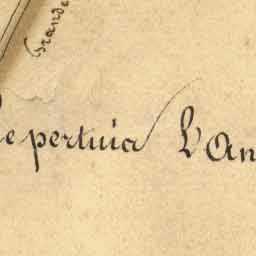 Grande
le pertuis L'An